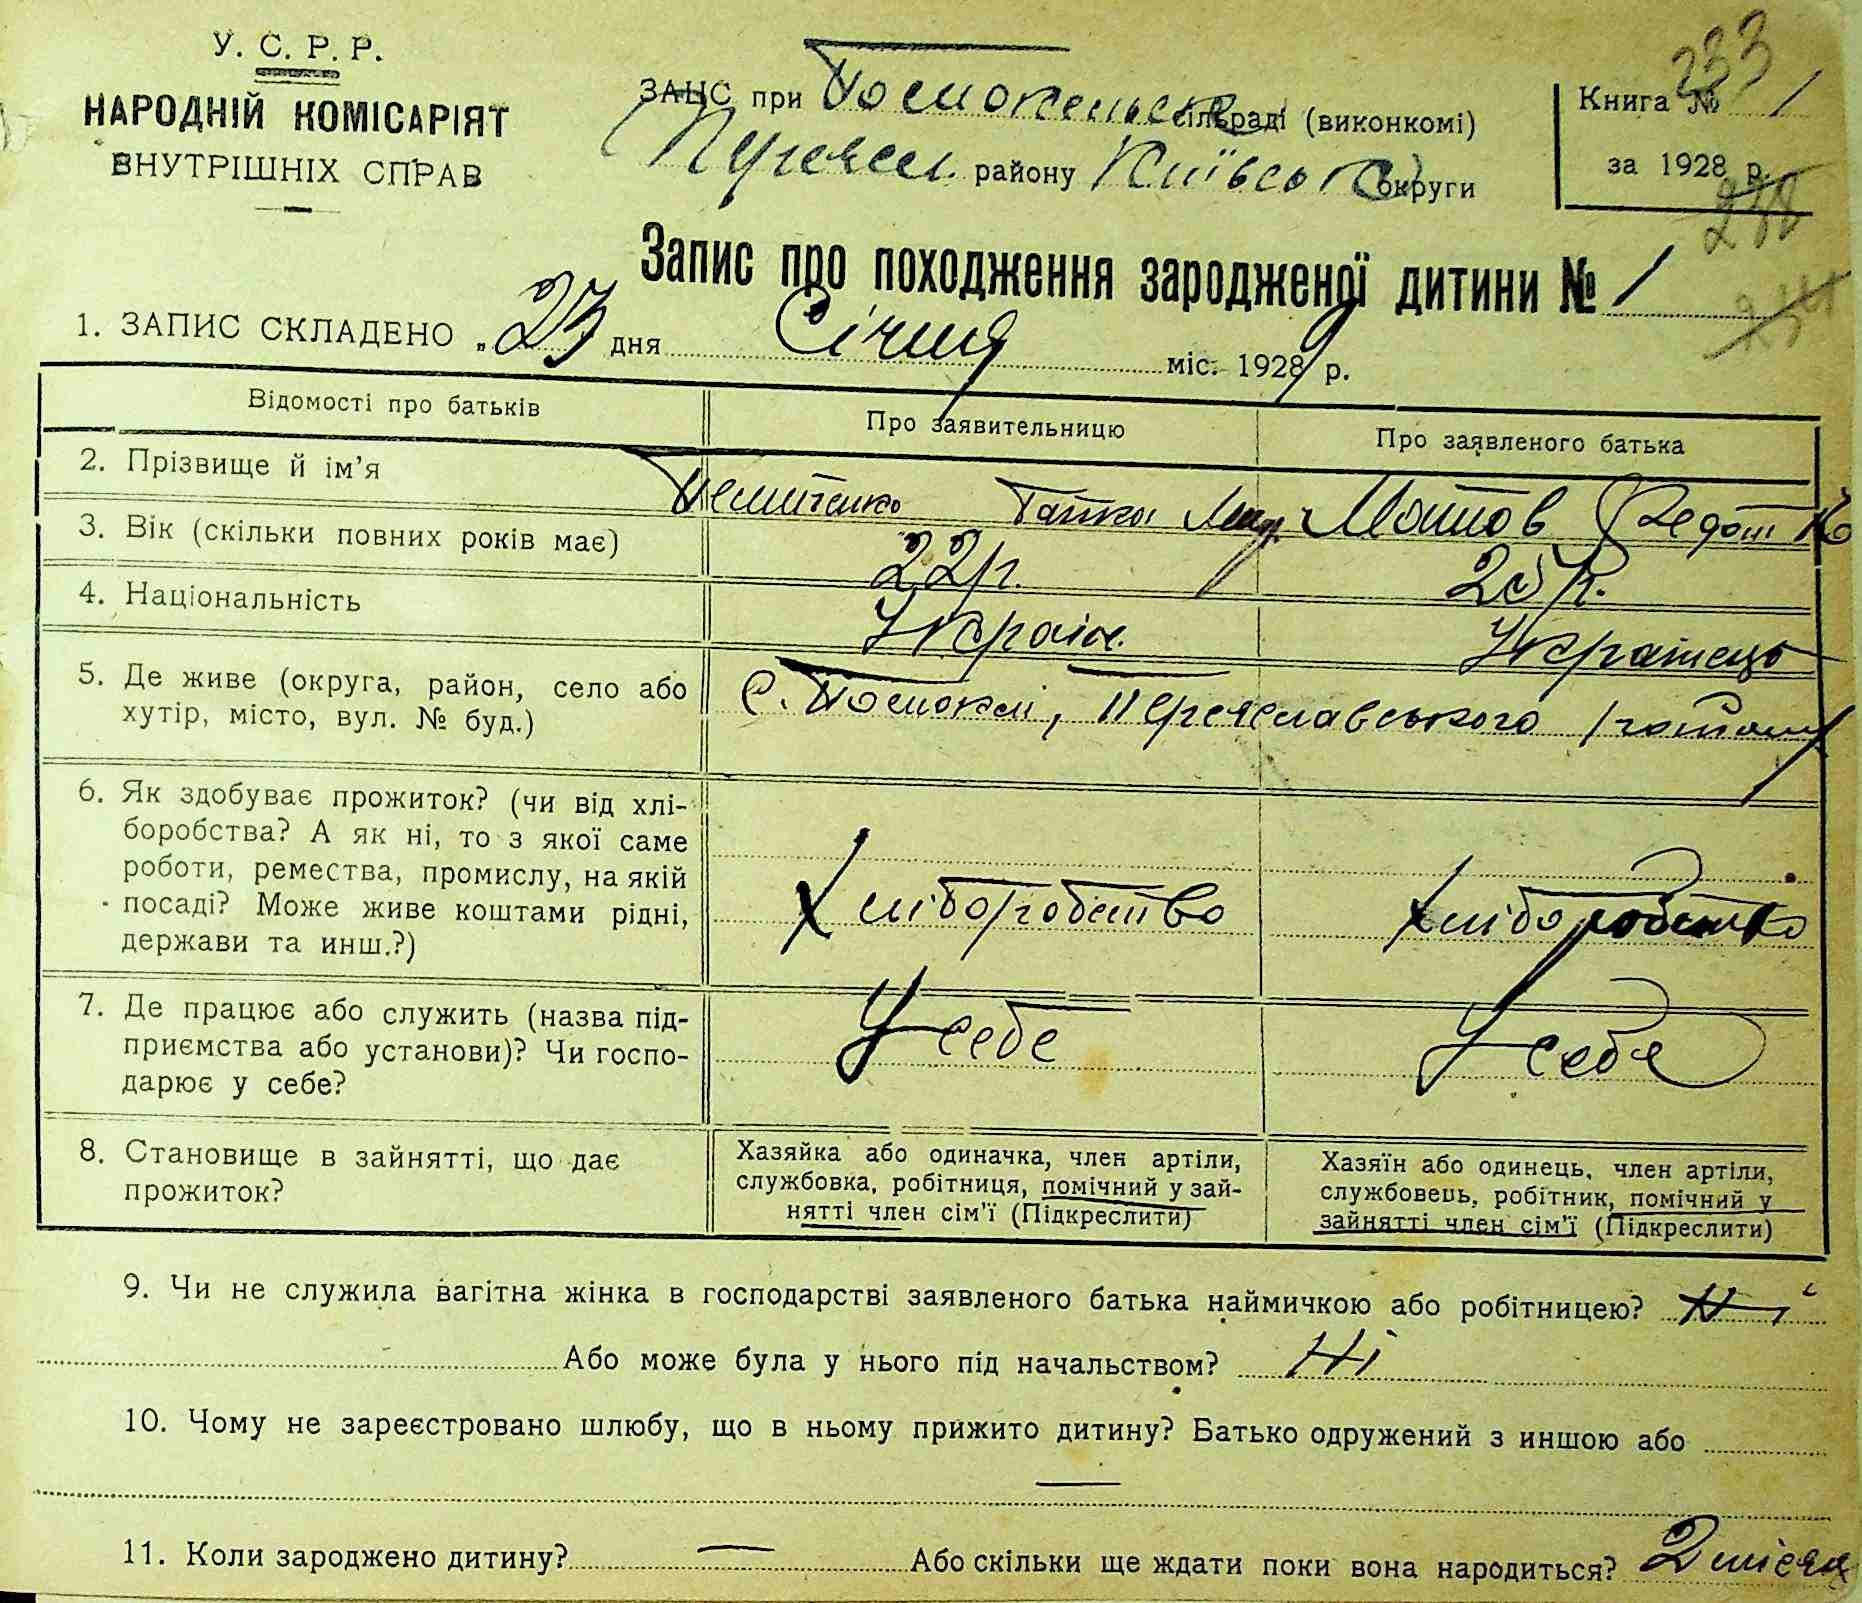 У. С. Р. Р.
НАРОДНІЙ КОМІСАРІЯТ
ВНУТРІШНІХ СПРАВ
ЗАЦС при сільраді (виконкомі)
району Київської округи
Книга № 1
за 1928 р.
233
Запис про походження зародженої дитини № 1
1. ЗАПИС СКЛАДЕНО „23 дня Січня міс. 1929 р.
Відомості про батьків Про заявительницю Про заявленого батька
2. Прізвище й ім'я
3. Вік (скільки повних років має) 22 р. 25 р.
4. Національність Україн. Українець
5. Де живе (округа, район, село або с. Переяславського району
хутір, місто, вул. № буд.)
6. Як здобуває прожиток? (чи від хлі-
боробства? А як ні, то з якої саме
роботи, ремества, промислу, на якій
посаді? Може живе коштами рідні, Хліборобство Хліборобство
держави та инш.?)
7. Де працює або служить (назва під-
приємства або установи)? Чи госпо- У себе У себе
дарює у себе?
8. Становище в зайнятті, що дає
прожиток?
Хазяйка або одиначка, член артіли,
службовка, робітниця, помічний у зай-
нятті член сім'ї (Підкреслити)
Хазяїн або одинець, член артіли,
службовець, робітник, помічний у
зайнятті член сім'ї (Підкреслити)
9. Чи не служила вагітна жінка в господарстві заявленого батька наймичкою або робітницею? Ні
Або може була у нього під начальством? Ні
10. Чому не зареєстровано шлюбу, що в ньому прижито дитину? Батько одружений з иншою або
—
11. Коли зароджено дитину? — Або скільки ще ждати поки вона народиться? 2 місяц